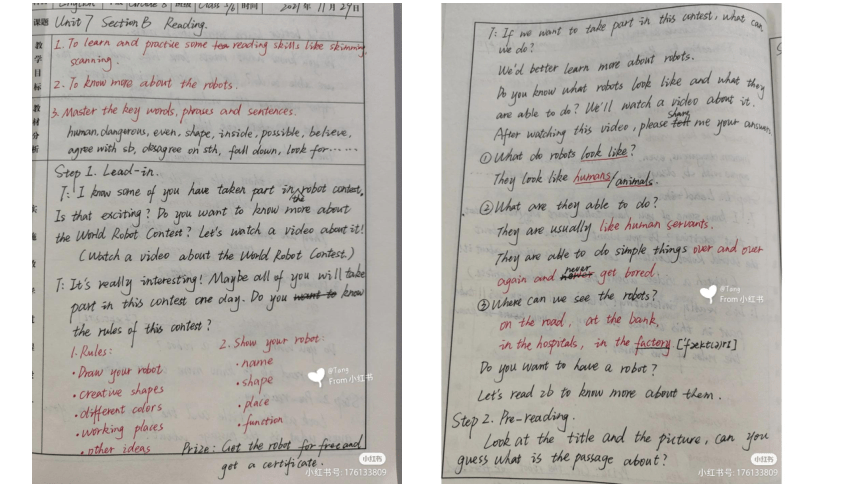 English
Class 5/6 时间 2021年11月29日
课题 Unit 7 Section B Reading.
教学目标
1. To learn and practise some reading skills like skimming, scanning.
2. To know more about the robots.
教材分析
3. Master the key words, phrases and sentences.
human, dangerous, even, shape, inside, possible, believe,
agree with sb, disagree on sth, fall down, look for……
Step 1. Lead-in.
T: I know some of you have taken part in the robot contest.
Is that exciting? Do you want to know more about
the World Robot Contest? Let's watch a video about it!
(Watch a video about the World Robot Contest.)
T: It's really interesting! Maybe all of you will take
part in this contest one day. Do you want to know
the rules of this contest?
1. Rules:
· Draw your robot
· creative shapes
· different colors
· working places
· other ideas
2. Show your robot:
· name
· shape
· place
· function
Prize: Get the robot for free and
get a certificate.
@Tang
From 小红书
小红书
小红书号: 176133809
T: If we want to take part in this contest, what can
we do?
We'd better learn more about robots.
Do you know what robots look like and what they
are able to do? We'll watch a video about it.
After watching this video, please tell share me your answers
① What do robots look like?
They look like humans/animals.
② What are they able to do?
They are usually like human servants.
They are able to do simple things over and over
again and never get bored.
③ Where can we see the robots?
on the road, at the bank,
in the hospitals, in the factory. ['fækt(ə)ri]
Do you want to have a robot?
Let's read 2b to know more about them.
Step 2. Pre-reading.
Look at the title and the picture, can you
guess what is the passage about?
@Tang
From 小红书
小红书
小红书号: 176133809